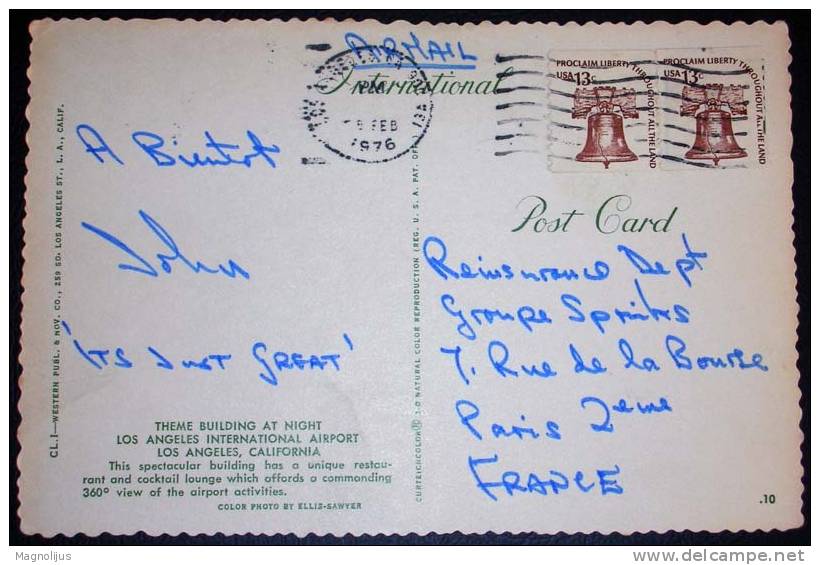 AIRMAIL
International
PM
FEB
1976
PROCLAIM LIBERTY THROUGHOUT ALL THE LAND
USA 13c
PROCLAIM LIBERTY THROUGHOUT ALL THE LAND
USA 13c
Post Card
A Bientot
John
'ITS JUST GREAT'
Reinsurance Dept
Groupe Sprinks
7. Rue de la Bourse
Paris 2eme
FRANCE
THEME BUILDING AT NIGHT
LOS ANGELES INTERNATIONAL AIRPORT
LOS ANGELES, CALIFORNIA
This spectacular building has a unique restau-
rant and cocktail lounge which affords a commanding
360° view of the airport activities.
COLOR PHOTO BY ELLIS-SAWYER
CL.1—WESTERN PUBL. & NOV. CO., 259 SO. LOS ANGELES ST., L. A., CALIF.
CURTEICHCOLOR® 3-D NATURAL COLOR REPRODUCTION (REG. U. S. A. PAT. OFF.)
.10
Magnolijus
delcampe.net